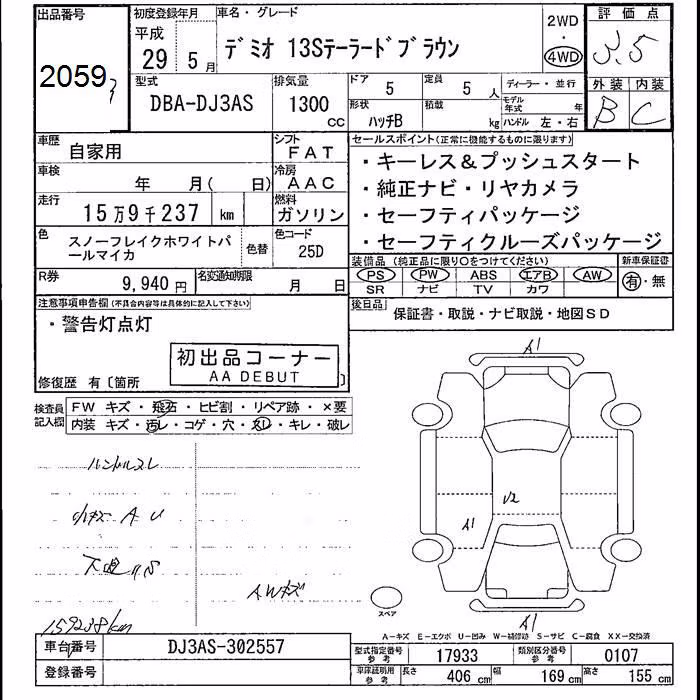 出品番号
2059
初度登録年月
平成
29 5 月
車名・グレード
デミオ 13Sテーラードブラウン
2WD
・
4WD
評価点
3.5
外装 内装
B C
型式
DBA-DJ3AS
排気量
1300
CC
ドア
5
定員
5 人
形状
ハッチB
積載
kg
ディーラー・並行
モデル年式 年
ハンドル 左・右
車歴
自家用
シフト
FAT
車検
年 月( 日)
冷房
AAC
走行
15万9千237 km
燃料
ガソリン
色
スノーフレイクホワイトパールマイカ
色替
色コード
25D
R券
9,940 円
名変通知期限
月 日
セールスポイント(正常に機能するものに限ります)
・キーレス&プッシュスタート
・純正ナビ・リヤカメラ
・セーフティパッケージ
・セーフティクルーズパッケージ
装備品 (純正品に限り○をつけてください)
PS PW ABS エアB AW
SR ナビ TV カワ
新車保証書
有・無
後日品
保証書・取説・ナビ取説・地図SD
注意事項申告欄(不具合内容等は具体的に記入して下さい)
・警告灯点灯
初出品コーナー
AA DEBUT
修復歴 有〔箇所 〕
検査員記入欄
FW キズ・飛石・ヒビ割・リペア跡・×要
内装 キズ・汚レ・コゲ・穴・スレ・キレ・破レ
ハンドルスレ
小キズ A U
下廻りS
AWキズ
159238km
A1
V2
A1
A1
スペア
A-キズ E-エクボ U-凹み W-補修跡 S-サビ C-腐食 XX-交換済
車台番号
DJ3AS-302557
登録番号
型式指定番号
参考
17933
類別区分番号
参考
0107
車庫証明用
参考
長さ 406 cm
幅 169 cm
高さ 155 cm